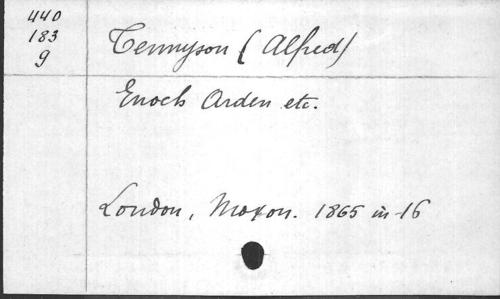 440
183
9
Tennyson (Alfred)
Enoch Arden etc.
London, Moxon. 1865 in-16